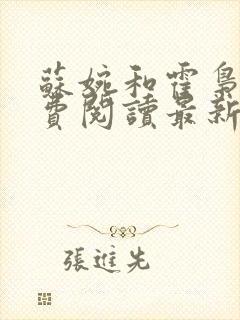 蘇婉和霍梟
費閱讀最新
張進先